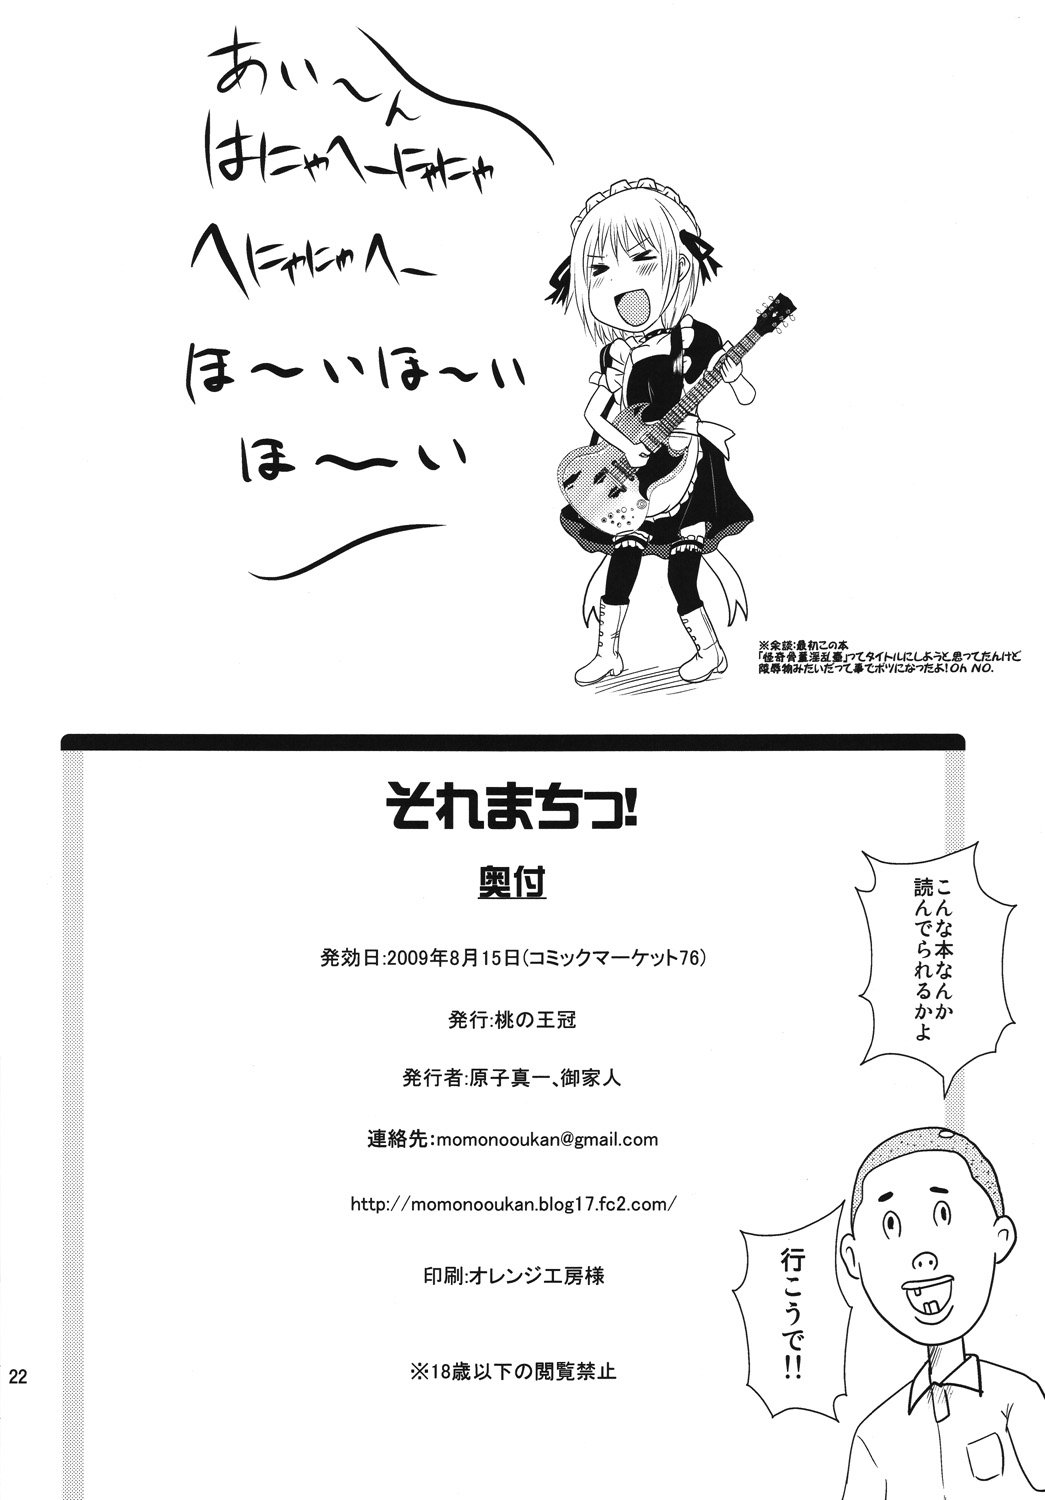 あい〜ん
はにゃへーにゃにゃ
へにゃにゃへー
ほ〜いほ〜い
ほ〜い
※余談:最初この本
「怪奇骨董淫乱壺」ってタイトルにしようと思ってたんけど
陵辱物みたいだって事でボツになったよ!Oh NO.
それまちっ!
奥付
発効日:2009年8月15日(コミックマーケット76)
発行:桃の王冠
発行者:原子真一、御家人
連絡先:momonooukan@gmail.com
http://momonooukan.blog17.fc2.com/
印刷:オレンジ工房様
※18歳以下の閲覧禁止
こんな本なんか
読んでられるかよ
行こうで!!
22